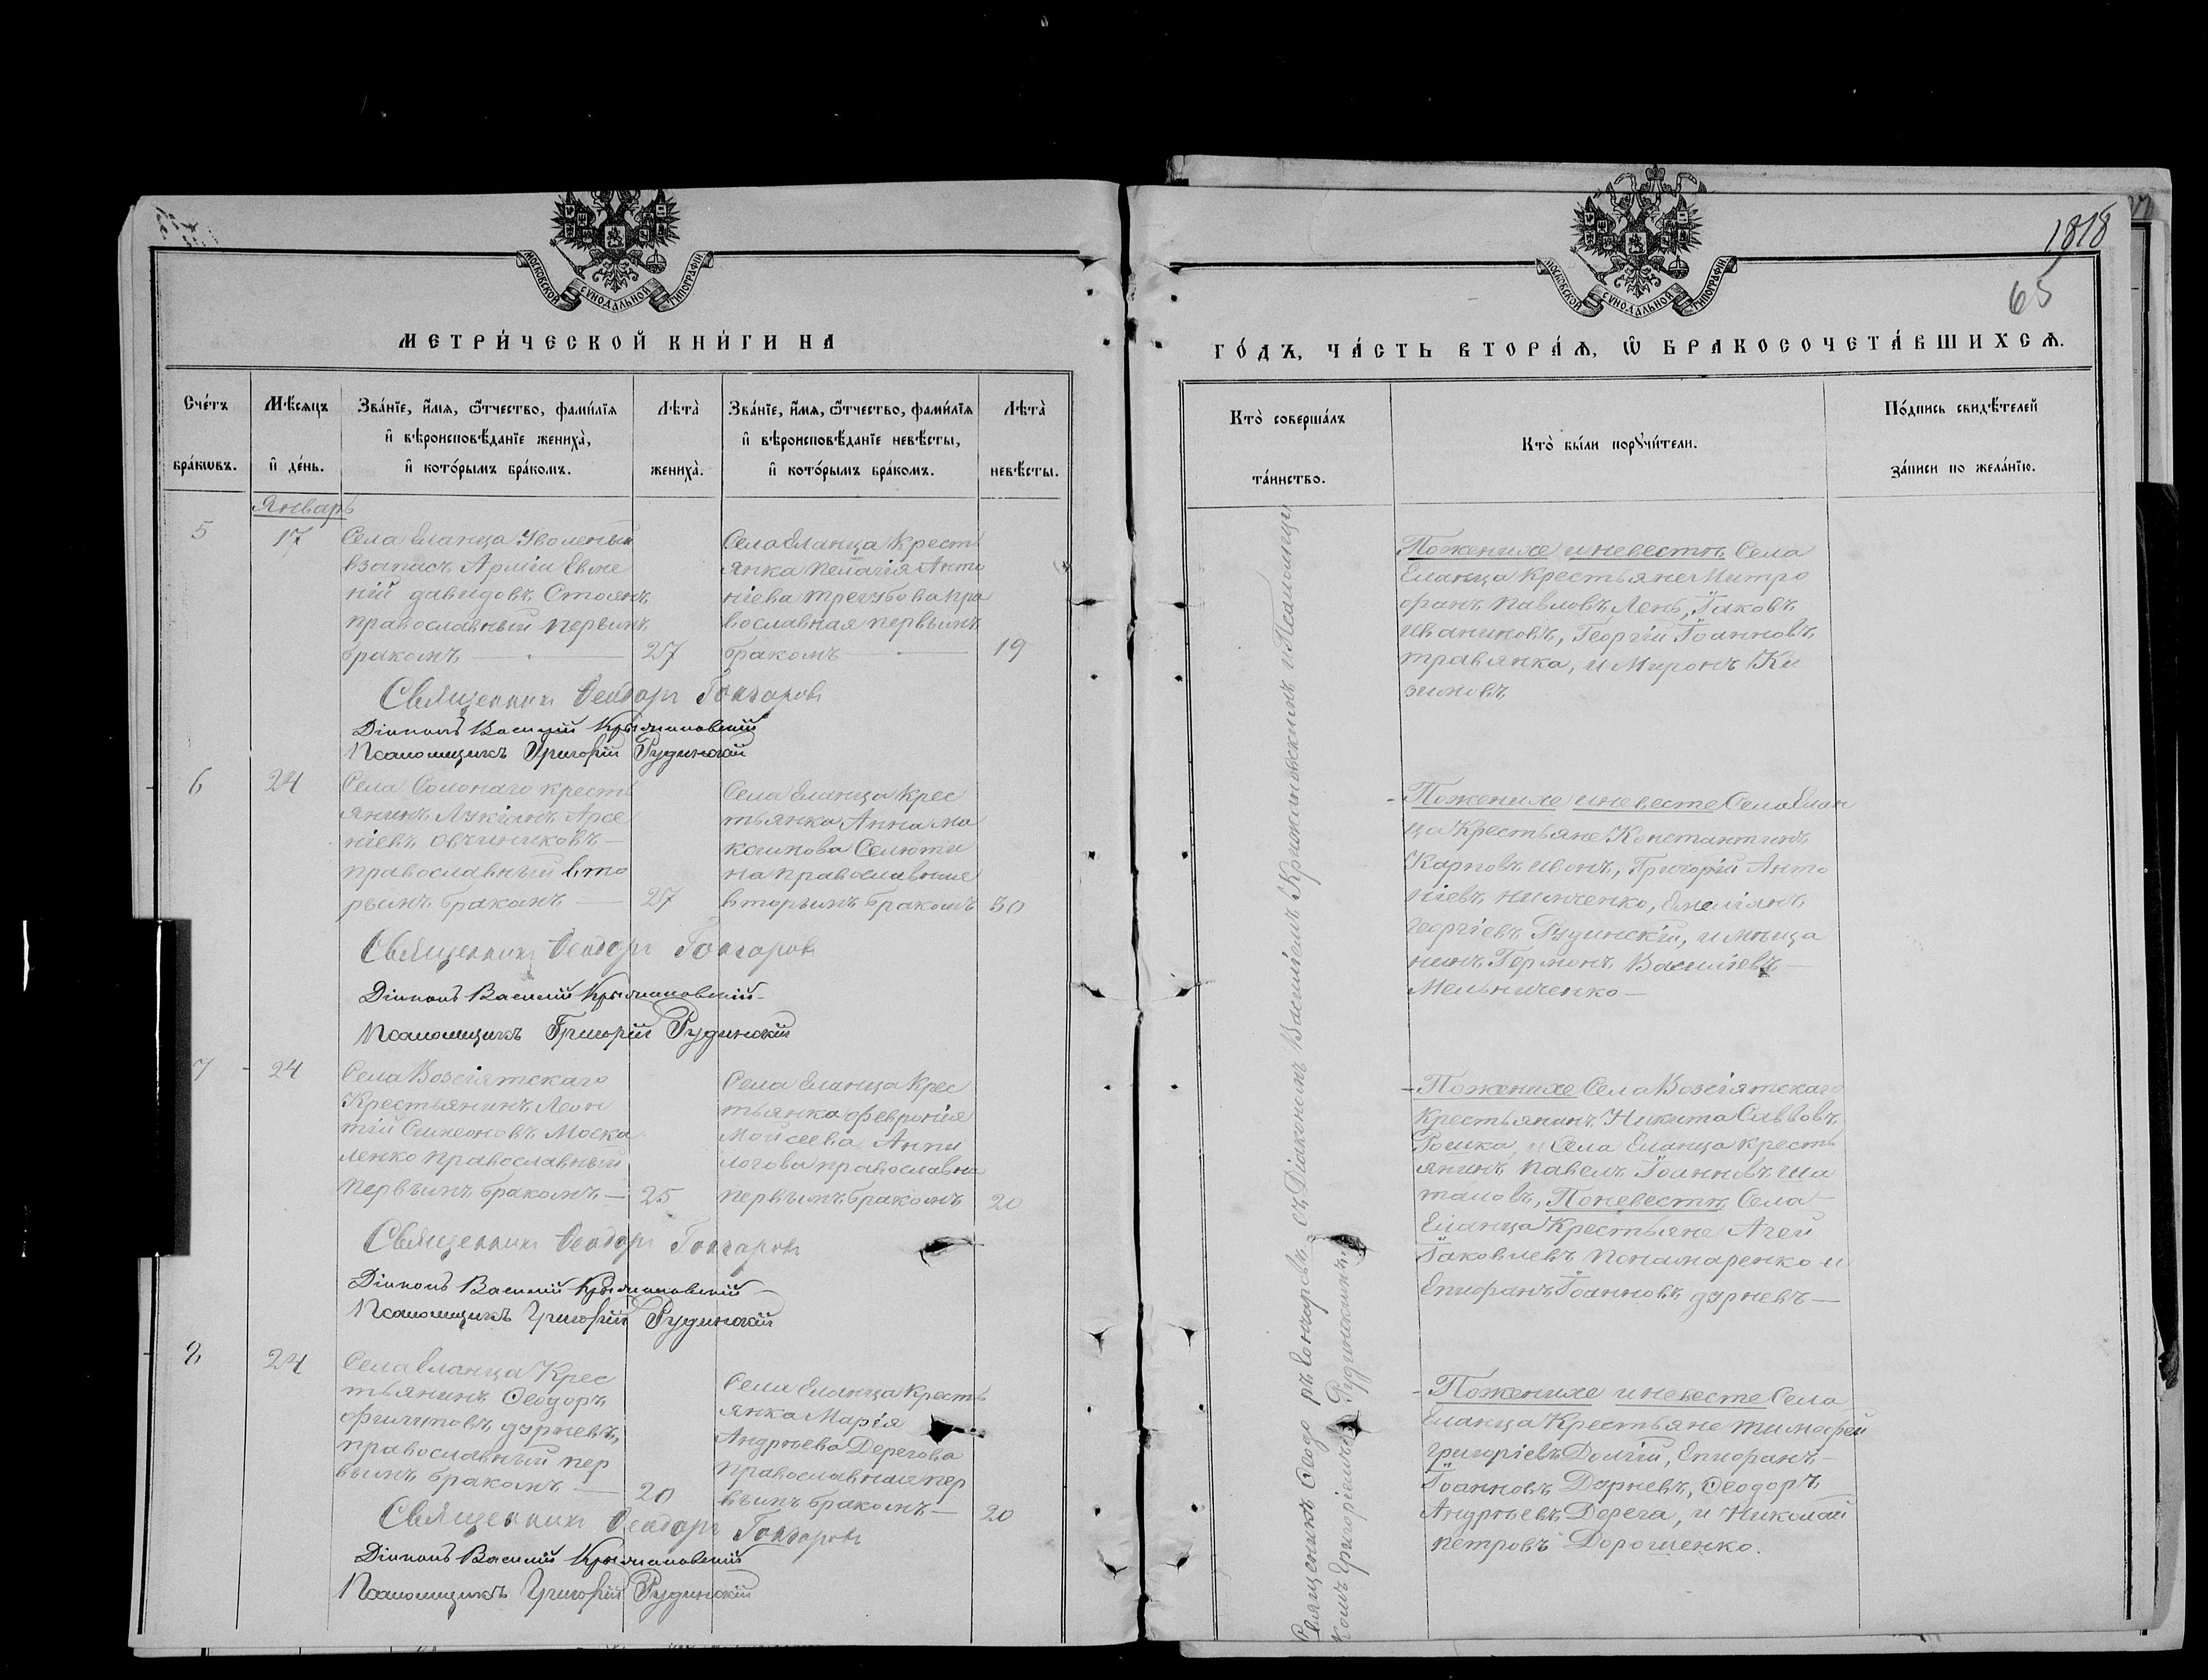 МОСКОВСКОЙ СѴНОДАЛЬНОЙ ТИПОГРАФІИ
МЕТРИ́ЧЕСКОЙ КНИ́ГИ НА
Сче́тъ бра́кѡвъ.
Мѣ́сяцъ и҆ де́нь.
Зва́нїе, и҆́мѧ, ѻ҆́тчество, фами́лїѧ
и҆ вѣроисповѣ́данїе жениха̀,
и҆ кото́рымъ бра́комъ.
Лѣта̀ жениха̀.
Зва́нїе, и҆́мѧ, ѻ҆́тчество, фами́лїѧ
и҆ вѣроисповѣ́данїе невѣ́сты,
и҆ кото́рымъ бра́комъ.
Лѣта̀ невѣ́сты.
Январь
5
17
Села Еланца Уволеный
взапасъ Арміи Евме
ній Давидовъ Стоянъ
православный первымъ
бракомъ — 27
Села Еланца Крестъ
янка Пелагія Анто
ніева Трегубова пра
вославная первымъ
бракомъ — 19
Священникъ Ѳеодоръ Гончаровъ
Діаконъ Василій Крыжановскій
Псаломщикъ Григорій Рудинскій
6
24
Села Солонаго кресть
янинъ Лукіанъ Арсе
ніевъ Овчиниковъ —
православный вто
рымъ бракомъ — 27
Села Еланца Крес
тьянка Анна Ма
каимова Селюти
на православная
вторымъ бракомъ 30
Священникъ Ѳеодоръ Гончаровъ
Діаконъ Василій Крыжановскій
Псаломщикъ Григорій Рудинскій
7
24
Села Возсіятскаго
Крестьянинъ Леон
тій Симеоновъ Моска
ленко православный
первымъ бракомъ — 25
Села Еланца Крес
тьянка Февронія
Мойсеева Анпи
логова православна
первымъ бракомъ 20
Священникъ Ѳеодоръ Гончаровъ
Діаконъ Василій Крыжановскій
Псаломщикъ Григорій Рудинскій
8
24
Села Еланца Крес
тьянинъ Ѳеодоръ
Филиповъ Дурневъ,
православный пер
вымъ бракомъ — 20
Села Еланца Кресть
янка Марія
Андрѣева Дерегова
православная пер
вымъ бракомъ — 20
Священникъ Ѳеодоръ Гончаровъ
Діаконъ Василій Крыжановскій
Псаломщикъ Григорій Рудинскій
1818
65
МОСКОВСКОЙ СѴНОДАЛЬНОЙ ТИПОГРАФІИ
ГО́ДЪ, ЧА́СТЬ ВТОРА́Ѧ, Ѡ҆ БРАКОСОЧЕТА́ВШИХСѦ.
Кто̀ соверша́лъ
та́инство.
Кто̀ бы́ли порꙋчи́тели.
По́дпись свидѣ́телей
за́писи по жела́нїю.
Священникъ Ѳеодоръ Гончаровъ съ Діакономъ Василіемъ Крижановскимъ и Псаломщи
комъ Григоріемъ Рудинскимъ
Поженихе иневестѣ Села
Еланца Крестьяне Митро
фанъ Павловъ Лень, Іаковъ
Иваниновъ, Георгій Іоанновъ
Травянка, и Миронъ Ки
зимовъ
Поженихе иневесте Села Елан
ца Крестьяне Константинъ
Карповъ Ивонъ, Григорій Анто
ніевъ Нимченко, Емеліянъ
Георгіевъ Рудинскій, и мѣща
нинъ Германъ Василіевъ —
Мельниченко —
Поженихе Села Возсіятскаго
Крестьянинъ Никита Саввовъ
Рошка, и Села Еланца кресть
янинъ Павелъ Іоанновъ Ша
таловъ, Поневестѣ Села
Еланца Крестьяне Агей
Іаковлевъ Понамаренко и
Епифанъ Іоанновъ Дурневъ —
Поженихе иневесте Села
Еланца Крестьяне Тимофей
Григоріевъ Долгій, Епифанъ —
Іоанновъ Дурневъ, Ѳеодоръ
Андрѣевъ Дерега, и Николай
Петровъ Дорошенко.